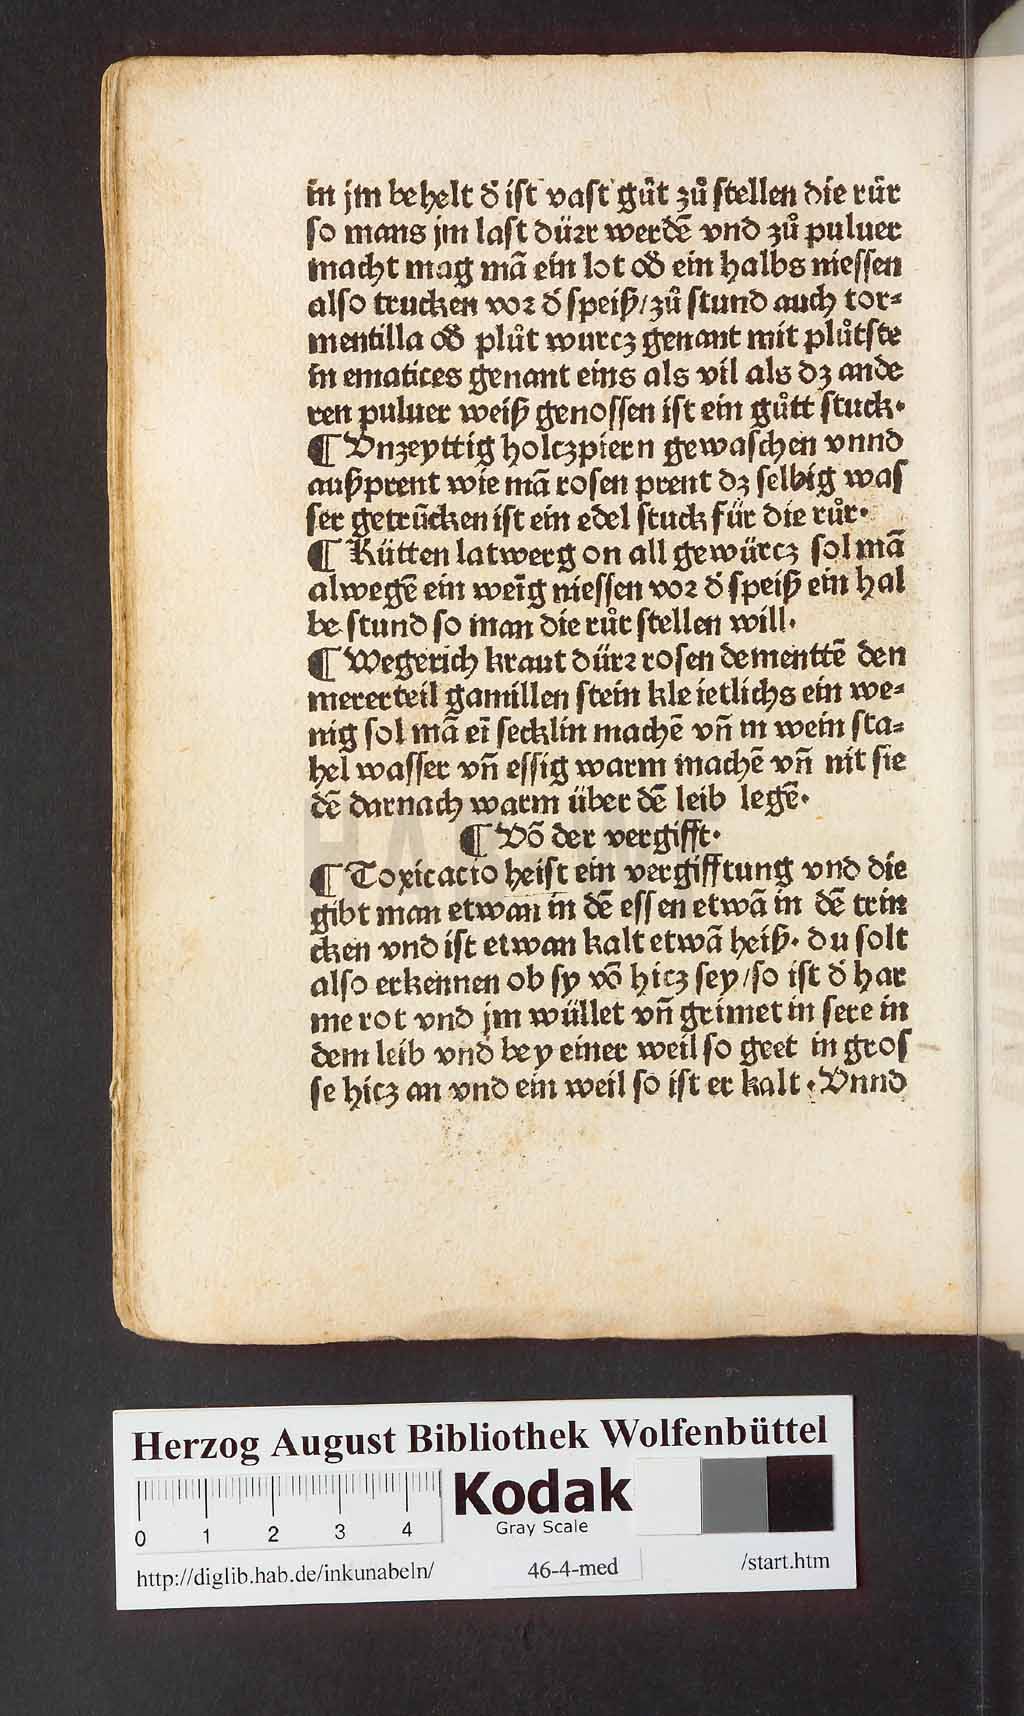 in jm behelt ď ist vast gůt zů stellen die růr
so mans jm last dürr werdē vnd zů puluer
macht mag mā ein lot oď ein halbs niessen
also trucken vor ď speiß/zů stund auch tor⸗
mentilla oď plůt wurcz genant mit plůtste
in ematices genant eins als vil als dz ande
ren puluer weiß genossen ist ein gůtt stuck.
¶ Vnzeyttig holczpiern gewaschen vnnd
außprent wie mā rosen prent dz selbig was
ser getrūcken ist ein edel stuck für die růr.
¶ Kütten latwerg on all gewürcz sol mā
alwegē ein weīg niessen vor ď speiß ein hal
be stund so man die růr stellen will.
¶ Wegerich kraut dürr rosen dementtē den
mererteil gamillen stein kle ietlichs ein we⸗
nig sol mā eī secklin machē vn̄ in wein sta⸗
hel wasser vn̄ essig warm machē vn̄ nit sie
dē darnach warm über dē leib legē.
¶ Vō der vergifft.
¶ Toxicacio heist ein vergifftung vnd die
gibt man etwan in dē essen etwā in dē trin
cken vnd ist etwan kalt etwā heiß. du solt
also erkennen ob sy vō hicz sey/so ist ď har
me rot vnd jm wüllet vn̄ grimet in sere in
dem leib vnd bey einer weil so geet in gros
se hicz an vnd ein weil so ist er kalt. Vnnd
Herzog August Bibliothek Wolfenbüttel
Kodak
Gray Scale
0 1 2 3 4
http://diglib.hab.de/inkunabeln/ 46-4-med /start.htm